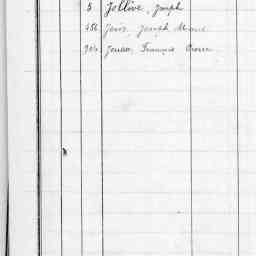 5 Jollive, Joseph
456 Joric, Joseph Marie
Jouan, François Pierre